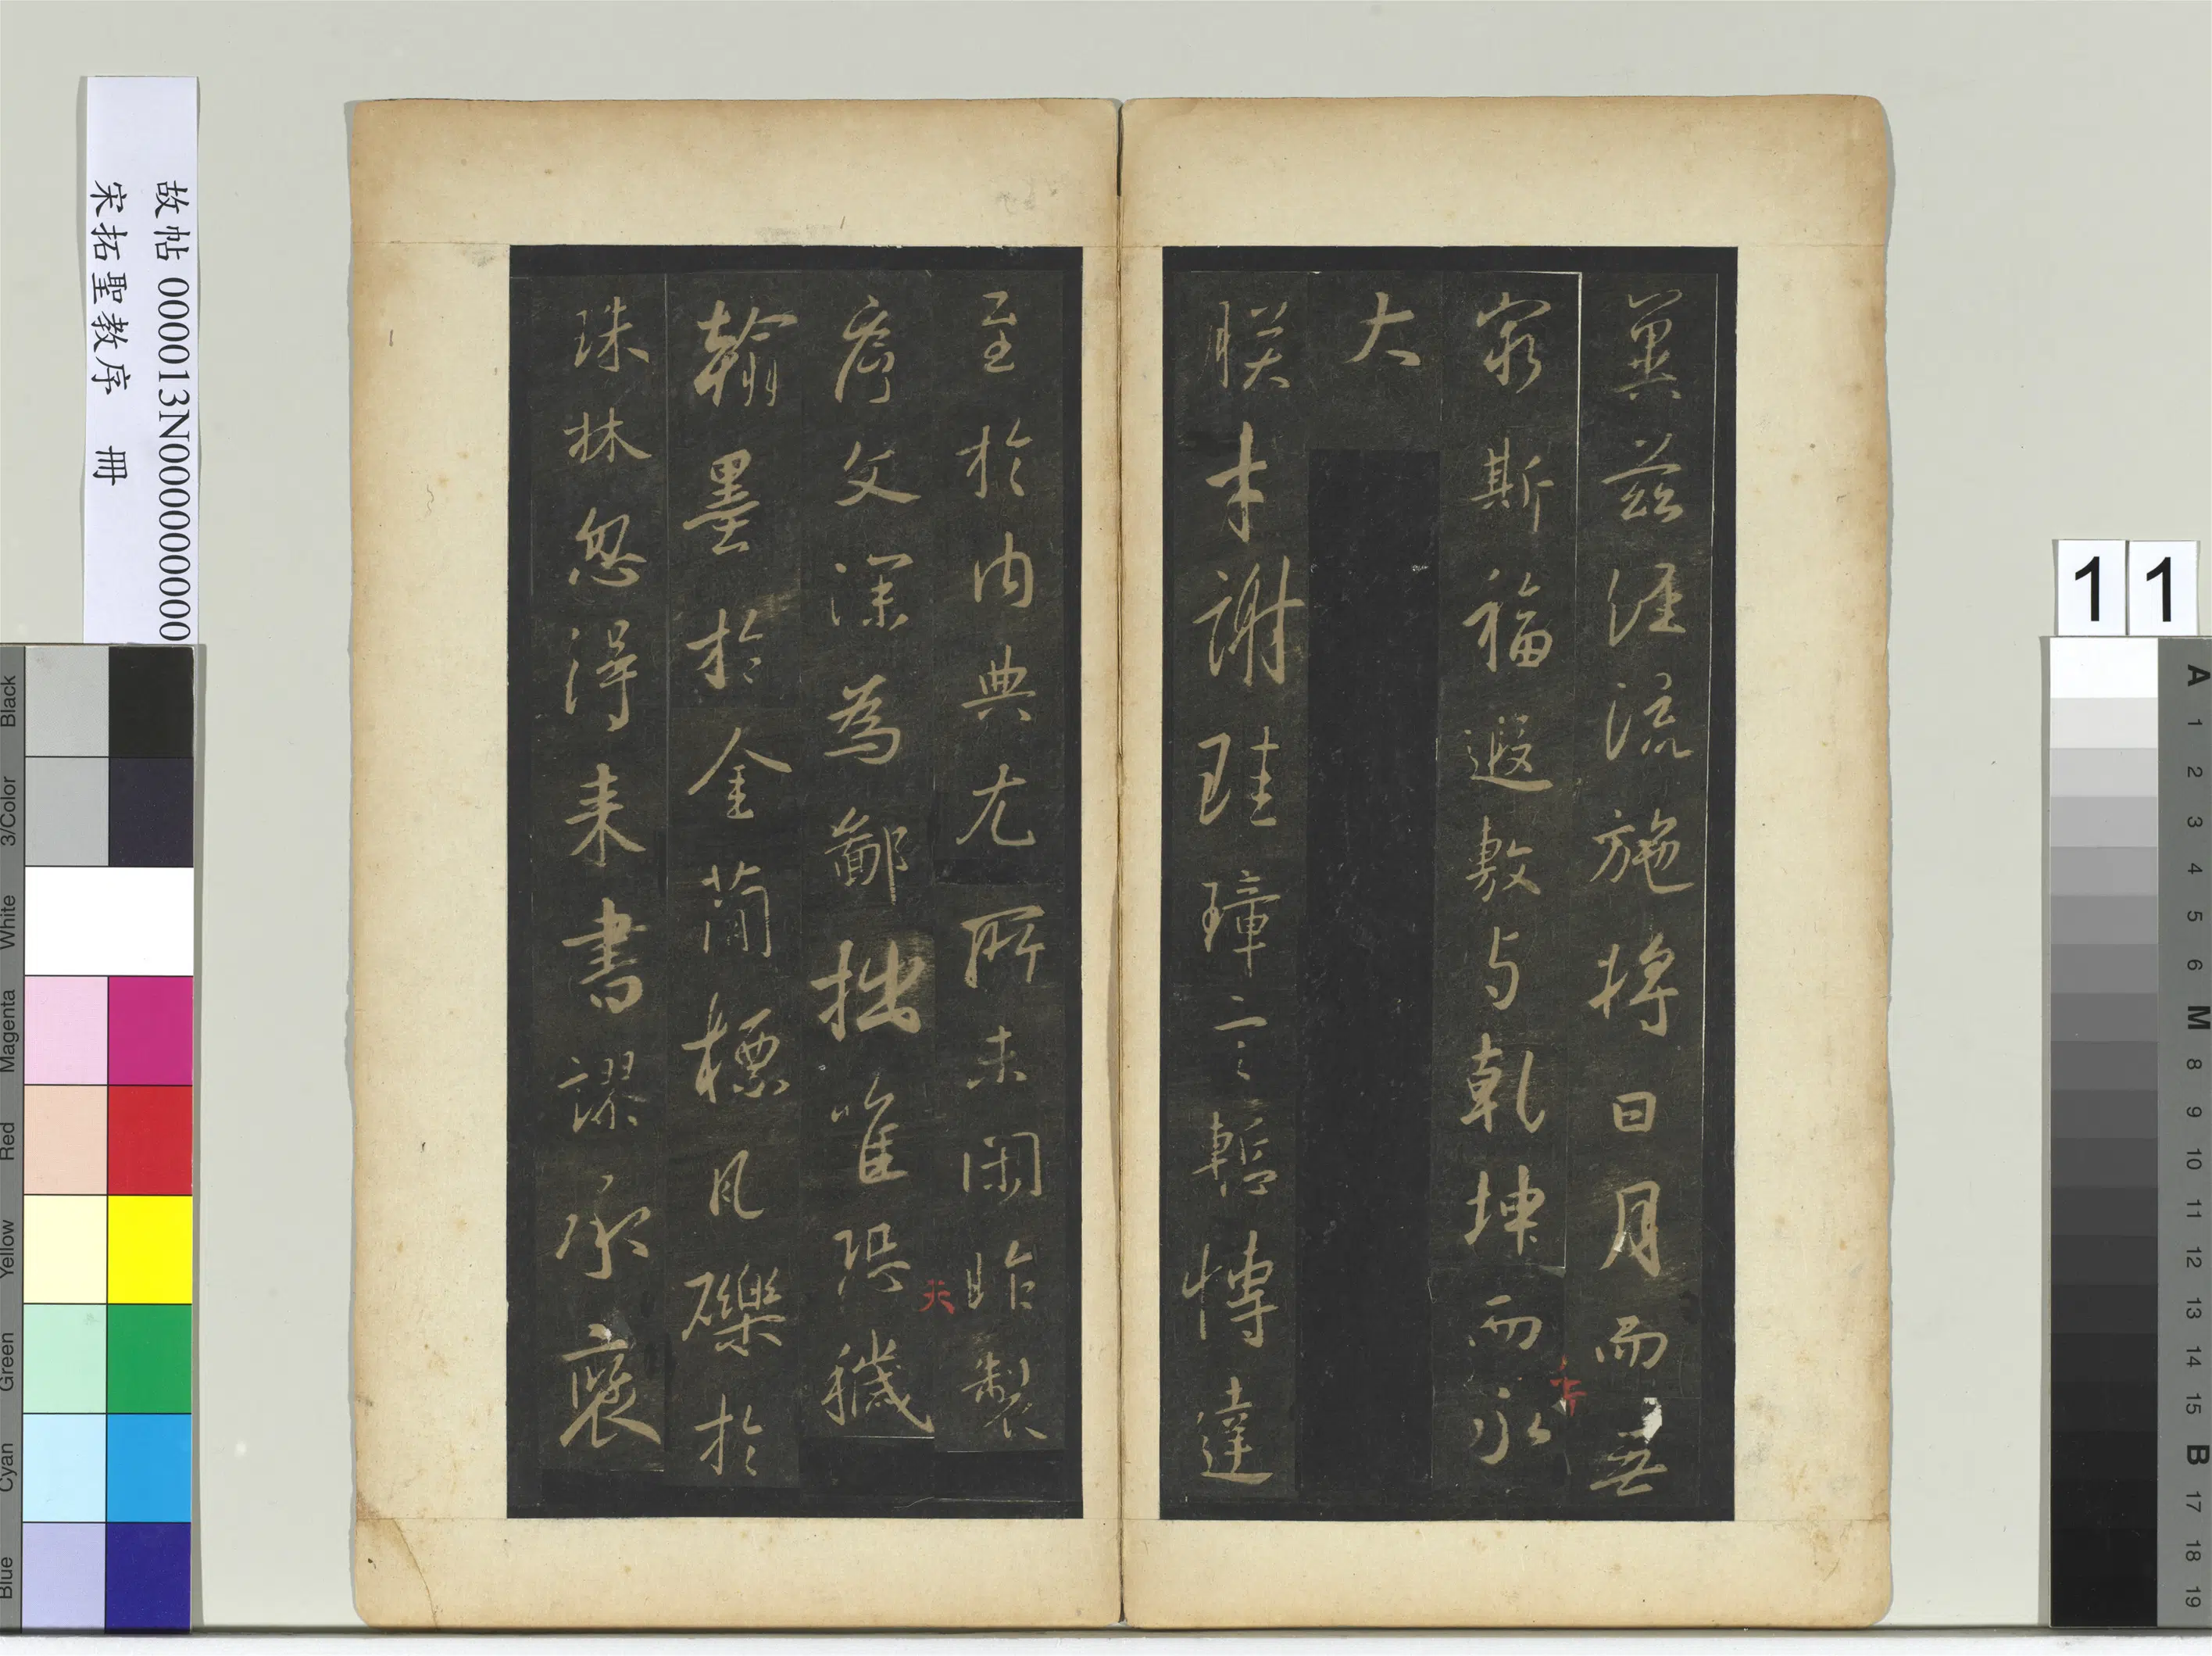 冀茲經流施將日月而無
窮斯福遐敷与乾坤而永
大
朕才謝珪璋言慙博達
至於內典尤所未閑昨製
序文深為鄙拙唯恐穢
翰墨於金簡標瓦礫於
珠林忽得来書謬承褒
故帖 000013N000000000
宋拓聖教序 冊
11
A 1 2 3 4 5 6 M 8 9 10 11 12 13 14 15 B 17 18 19
Blue Cyan Green Yellow Red Magenta White 3/Color Black